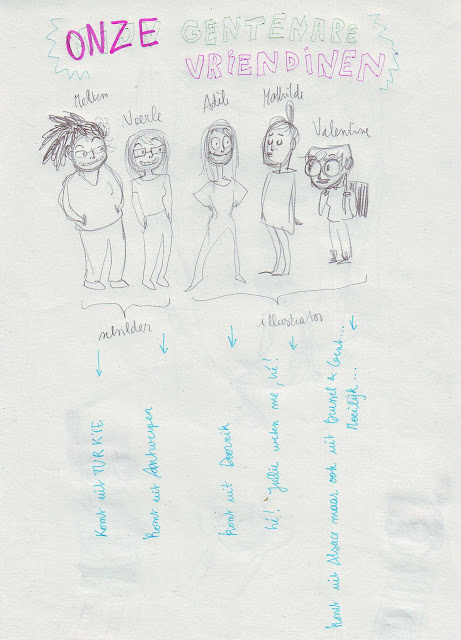 ONZE GENTENARE
VRIENDINEN
Meltem
Veerle
Adèle
Mathilde
Valentine
schilder
illustrator
komt uit TURKIE
komt uit Antwerpen
komt uit Doornik
hé! Jullie weten me, hé!
komt uit Alsace maar ook uit Brussel & Gent...
Moeilijk...